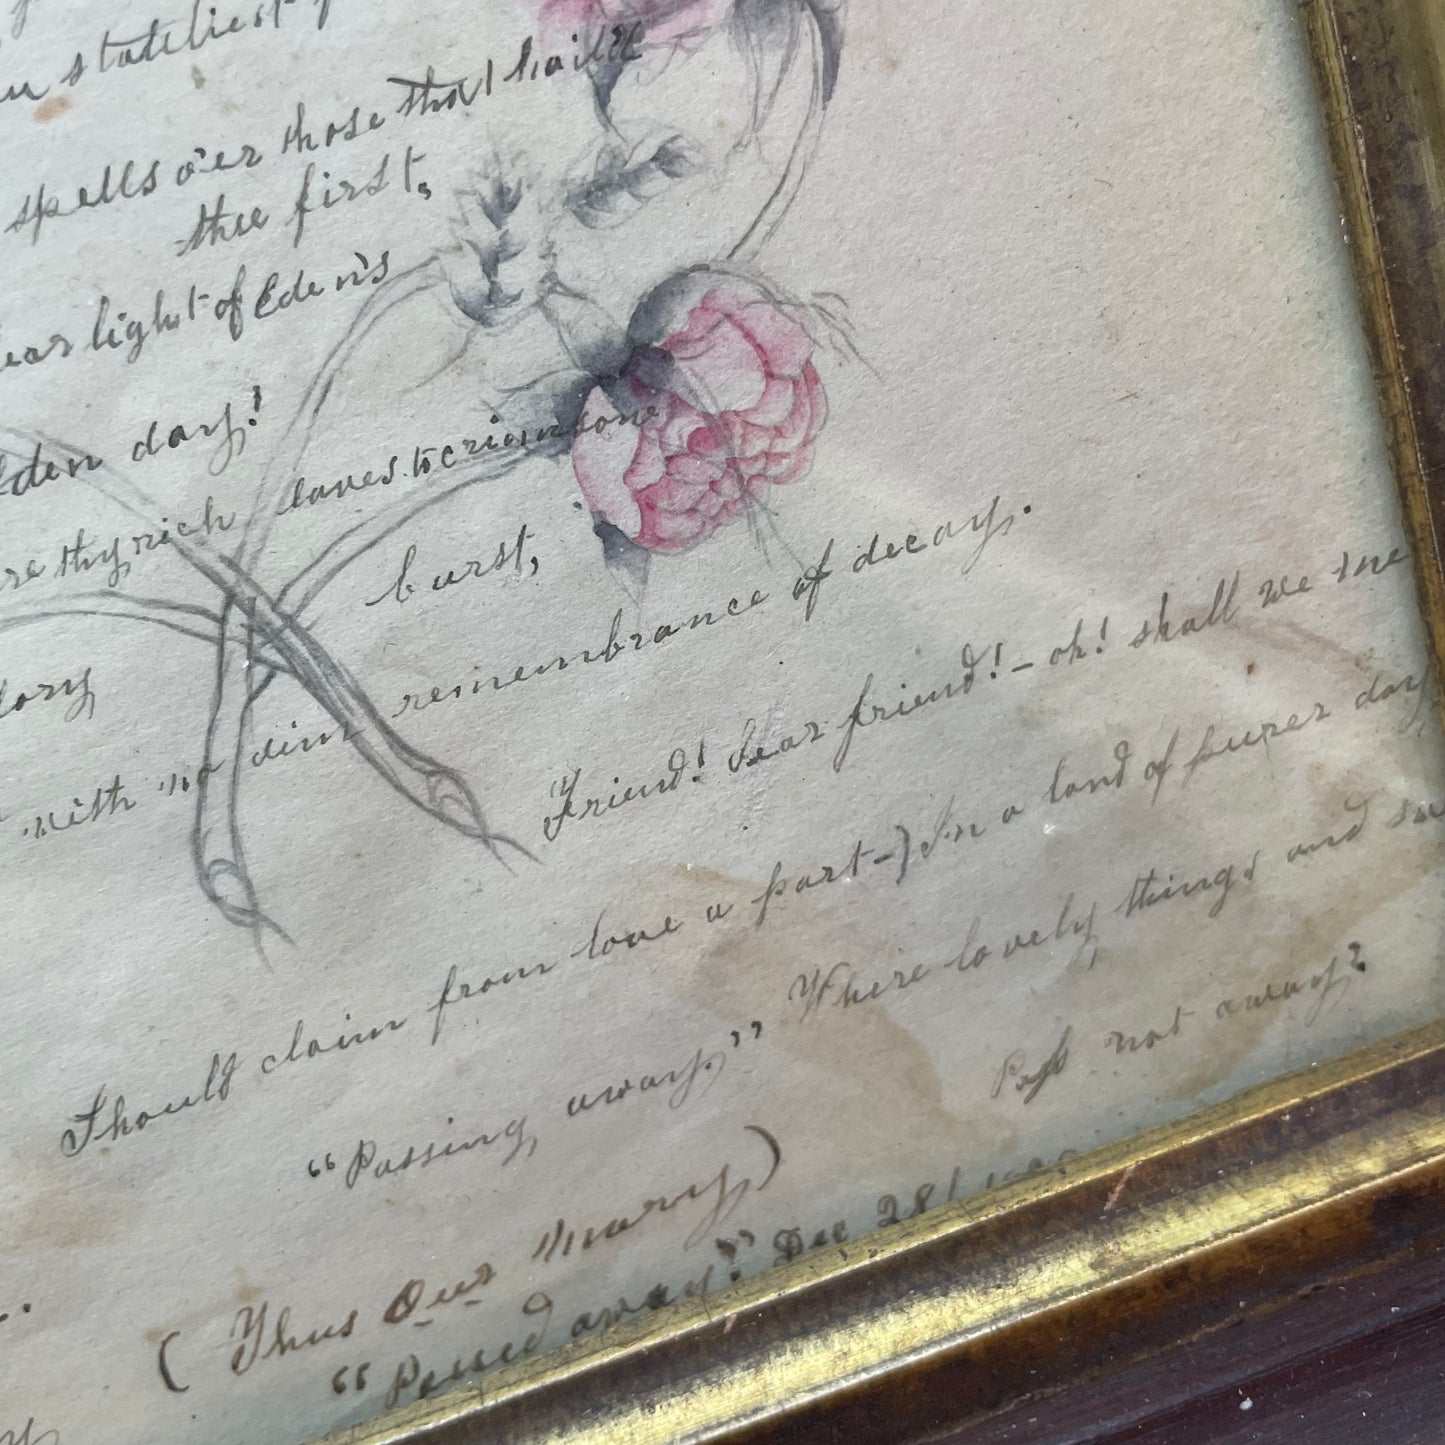 stateliest
spells o'er those that hailed
thee first,
light of Eden's
day!
thy rich leaves to crimson
burst,
with no dim remembrance of decay.
Friend! dear friend! – oh! shall we me
Should claim from love a part –) In a land of purer day
"Passing away." Where lovely things and sw
Pass not away?
( Thus Our Mary )
"Passed away" Dec 28